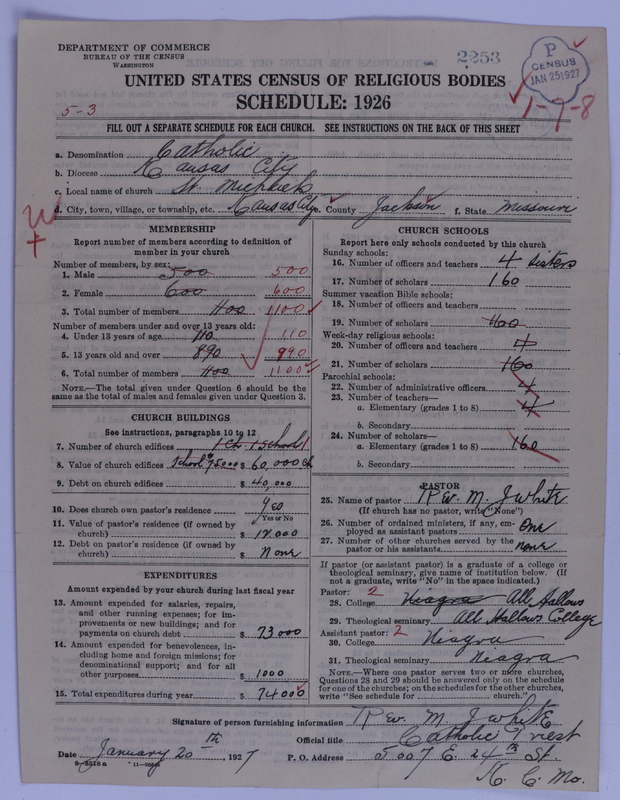 DEPARTMENT OF COMMERCE
BUREAU OF THE CENSUS
WASHINGTON
2253
P
CENSUS
JAN 25 1927
UNITED STATES CENSUS OF RELIGIOUS BODIES
SCHEDULE: 1926
5-3
1-7-8
FILL OUT A SEPARATE SCHEDULE FOR EACH CHURCH. SEE INSTRUCTIONS ON THE BACK OF THIS SHEET
a. Denomination Catholic
b. Diocese Kansas City
c. Local name of church St. Michaels
d. City, town, village, or township, etc. Kansas City e. County Jackson f. State Missouri
MEMBERSHIP
Report number of members according to definition of
member in your church
Number of members, by sex:
1. Male 500 500
2. Female 600 600
3. Total number of members 1100 1100
Number of members under and over 13 years old:
4. Under 13 years of age 110 110
5. 13 years old and over 890 990
6. Total number of members 1100 1100
NOTE.—The total given under Question 6 should be the
same as the total of males and females given under Question 3.
CHURCH BUILDINGS
See instructions, paragraphs 10 to 12
7. Number of church edifices 1 Ch. 1 School 1
8. Value of church edifices School 95000 $ 60,000 Ch
9. Debt on church edifices $ 40,000
10. Does church own pastor's residence Yes
Yes or No
11. Value of pastor's residence (if owned by
church) $ 12.000
12. Debt on pastor's residence (if owned by
church) $ none
EXPENDITURES
Amount expended by your church during last fiscal year
13. Amount expended for salaries, repairs,
and other running expenses; for im-
provements or new buildings; and for
payments on church debt $ 73 000
14. Amount expended for benevolences, in-
cluding home and foreign missions; for
denominational support; and for all
other purposes $ 1000
15. Total expenditures during year $ 74000
CHURCH SCHOOLS
Report here only schools conducted by this church
Sunday schools:
16. Number of officers and teachers 4 Sisters
17. Number of scholars 160
Summer vacation Bible schools:
18. Number of officers and teachers
19. Number of scholars
Week-day religious schools:
20. Number of officers and teachers 4
21. Number of scholars 160
Parochial schools:
22. Number of administrative officers 4
23. Number of teachers—
a. Elementary (grades 1 to 8) 4
b. Secondary
24. Number of scholars—
a. Elementary (grades 1 to 8) 160
b. Secondary
PASTOR
25. Name of pastor Rev. M. J White
(If church has no pastor, write "None")
26. Number of ordained ministers, if any, em-
ployed as assistant pastors One
27. Number of other churches served by the
pastor or his assistants none
If pastor (or assistant pastor) is a graduate of a college or
theological seminary, give name of institution below. (If
not a graduate, write "No" in the space indicated.)
Pastor: 2
28. College Niagra All Hallows
29. Theological seminary All Hallows College
Assistant pastor: 2
30. College Niagra
31. Theological seminary Niagra
NOTE.—Where one pastor serves two or more churches,
Questions 28 and 29 should be answered only on the schedule
for one of the churches; on the schedules for the other churches,
write "See schedule for church.")
Signature of person furnishing information Rev. M. J White
Official title Catholic Priest
Date January 20th, 1927 P. O. Address 5007 E. 24th St.
K. C. Mo.